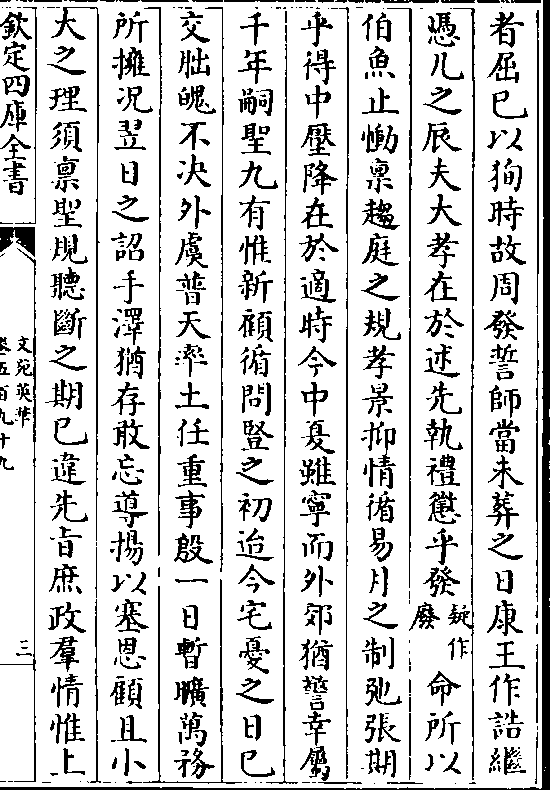 者屈已以狥時故周發誓師當未葬之日康王作誥繼
憑几之辰夫大孝在於述先執禮懲乎發疑作廢命所以
伯魚止慟稟趨庭之規孝景抑情循易月之制弛張期
乎得中壓降在於適時今中夏雖寧而外郊猶警幸屬
千年嗣聖九有惟新顧循問豎之初迨今宅憂之日已
交朏魄不决外虞普天率土任重事殷一日暫曠萬務
所擁况翌日之詔手澤猶存敢忘導揚以塞恩顧且小
大之理須禀聖規聽斷之期已違先㫖庶政羣情惟上
欽定四庫全書
文苑英華
卷五百九十九
三